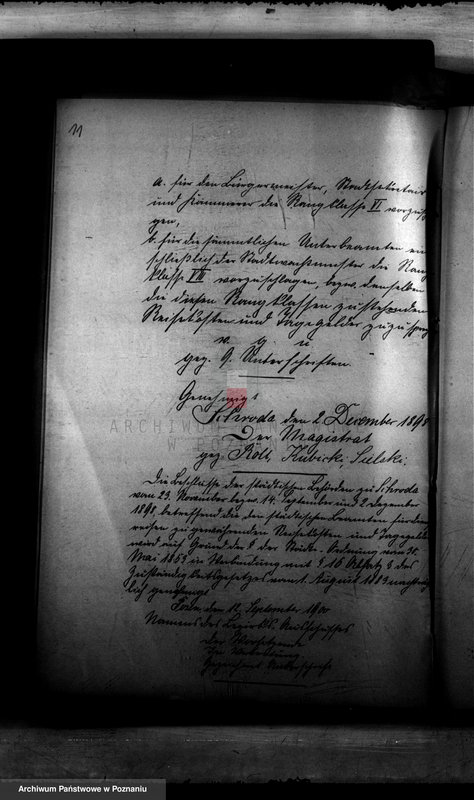 11
a. für den Bürgermeister, Stadtsekretair
und Kämmerer die Rangklasse VI vorzuschla
gen,
b. für die sämmtlichen Unterbeamten ein
schließlich der Stadtwachtmeister die Rang
klasse VIII vorzuschlagen, bezw. denselben
die diesen Rangklassen zustehenden
Reisekosten und Tagegelder zuzusprechen
v. g. u.
gez. 9. Unterschriften.
Genehmigt
Schroda, den 2 December 1898
Der Magistrat
gez. Roll, Kubicki, Sulski.
ARCHIWUM
W POZNA
Die Beschlüsse der städtischen Behörden zu Schroda
vom 23. November bezw. 14. September und 2 Dezember
1898 betreffend die den städtischen Beamten für Dienst
reisen zu gewährenden Reisekosten und Tagegelder
wird auf Grund des § der Städte-Ordnung vom 30.
Mai 1853 in Verbindung mit § 16 Absatz 3 des
Zuständigkeitsgesetzes vom 1. August 1883 nachträg
lich genehmigt
Posen, den 12 September 1900
Namens des Bezirks-Ausschusses
der Vorsitzende
In Vertretung
Gezeichnet Unterschrift
Archiwum Państwowe w Poznaniu